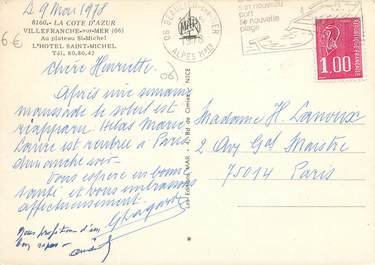 Le 9 Mars 1978
8160. - LA COTE D'AZUR
VILLEFRANCHE-sur-MER (06)
Au plateau St-Michel
L'HOTEL SAINT-MICHEL
Tél. 80.80.42
6 €
06
Chère Henriette
Après une semaine
maussade le soleil est
réapparu. Hélas Marie
Laure est rentrée à Paris
dimanche soir.
Vous espère en bonne
santé et vous embrassons
affectueusement.
Nous profitons d'un
bon repos -
Les Editions MAR - Bd de Cimiez NICE
06 BEAULIEU-sur-MER
ALPES MMES
Son nouveau
port
Sa nouvelle
plage
1.00
Madame H. Lanoux
2 Av Gal Maistre
75014 Paris